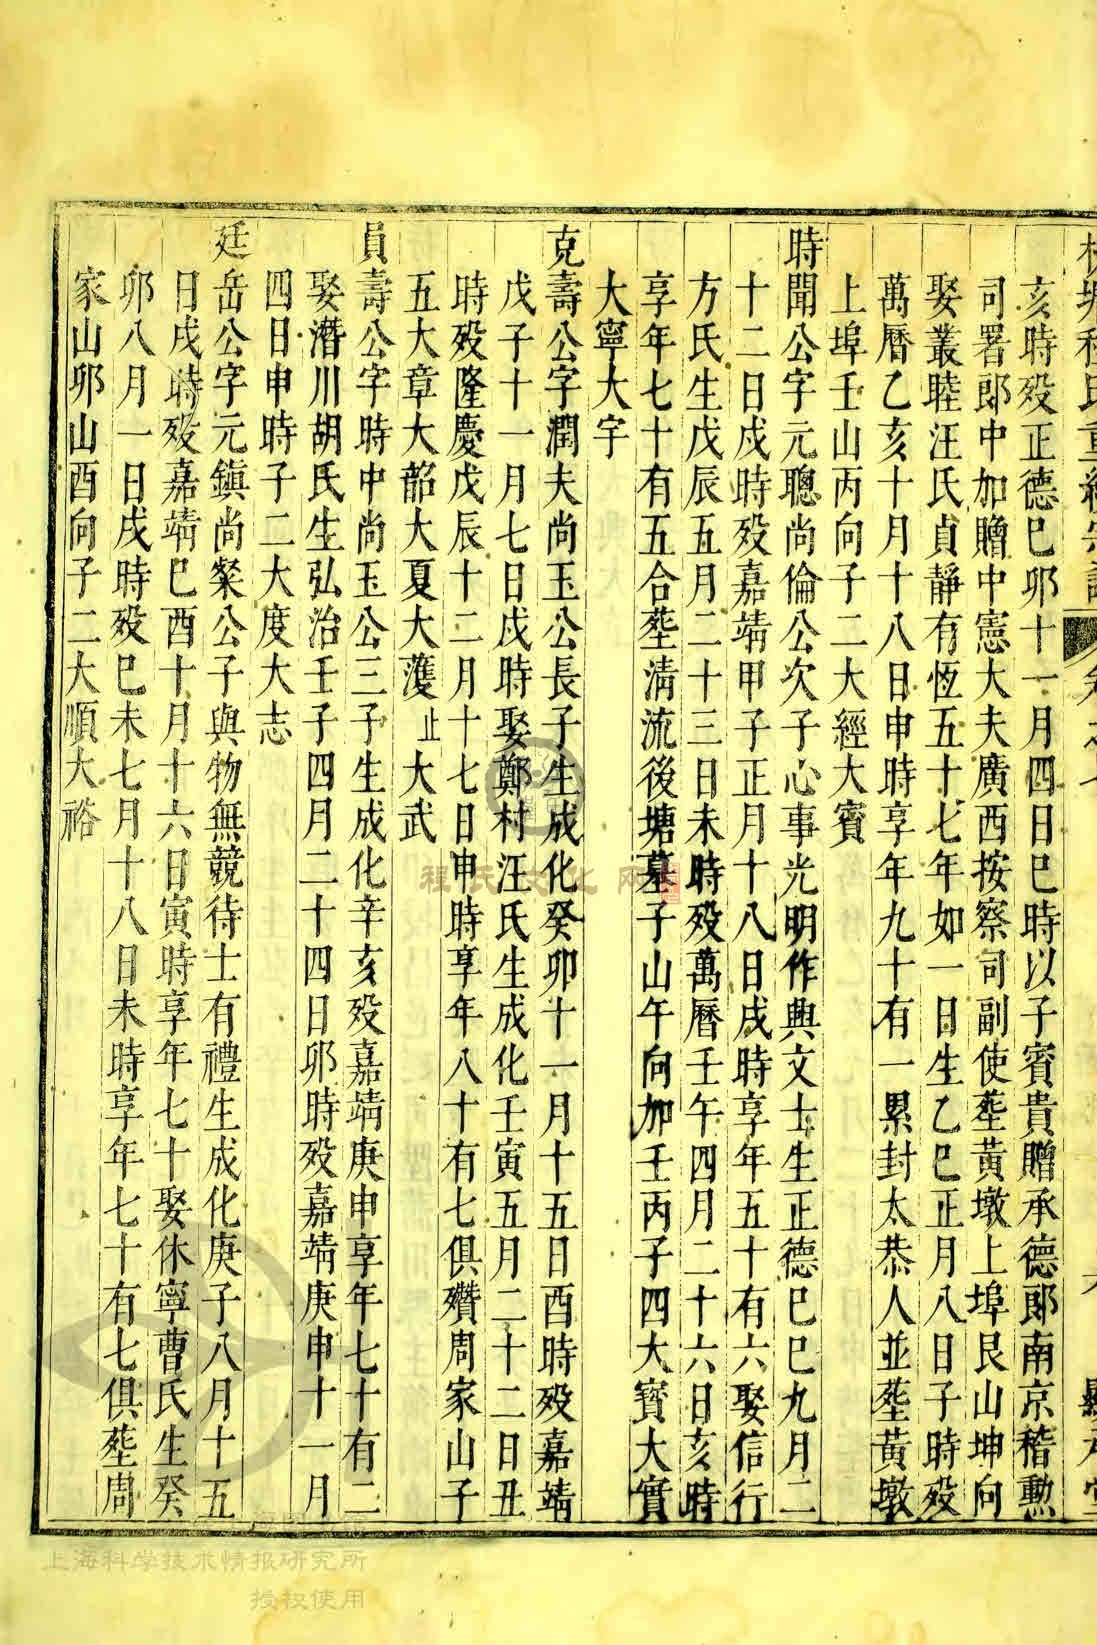 程氏重
亥時殁正德己卯十一月四日巳時以子賓貴贈承德郎南京稽勲
司署郎中加贈中憲大夫廣西按察司副使塟黃墩上埠艮山坤向
娶叢睦汪氏貞靜有恆五十七年如一日生乙巳正月八日子時殁
萬曆乙亥十月十八日申時享年九十有一累封太恭人並塟黃墩
上埠壬山丙向子二大經大賓
時聞公字元聰尚倫公次子心事光明作典文士生正德己巳九月二
十二日戍時殁嘉靖甲子正月十八日戍時享年五十有六娶信行
方氏生戊辰五月二十三日未時殁萬曆壬午四月二十六日亥時
享年七十有五合塟清流後塘墓子山午向加壬丙子四大寶大實
大寧大字
克壽公字潤夫尚玉公長子生成化癸卯十一月十五日酉時殁嘉靖
戊子十一月七日戍時娶鄭村汪氏生成化壬寅五月二十二日丑
時殁隆慶戊辰十二月十七日申時享年八十有七俱殯周家山子
五大章大韶大夏大濩止大武
員壽公字時中尚玉公三子生成化辛亥殁嘉靖庚申享年七十有二
娶潛川胡氏生弘治壬子四月二十四日卯時殁嘉靖庚申十一月
四日申時子二大度大志
廷岳公字元鎮尚粲公子與物無競待士有禮生成化庚子八月十五
日戍時殁嘉靖己酉十月十六日寅時享年七十娶休寧曹氏生癸
卯八月一日戍時殁己未七月十八日未時享年七十有七俱塟周
家山卯山酉向子二大順大裕
程氏文化网
上海科学技术情报研究所
授权使用